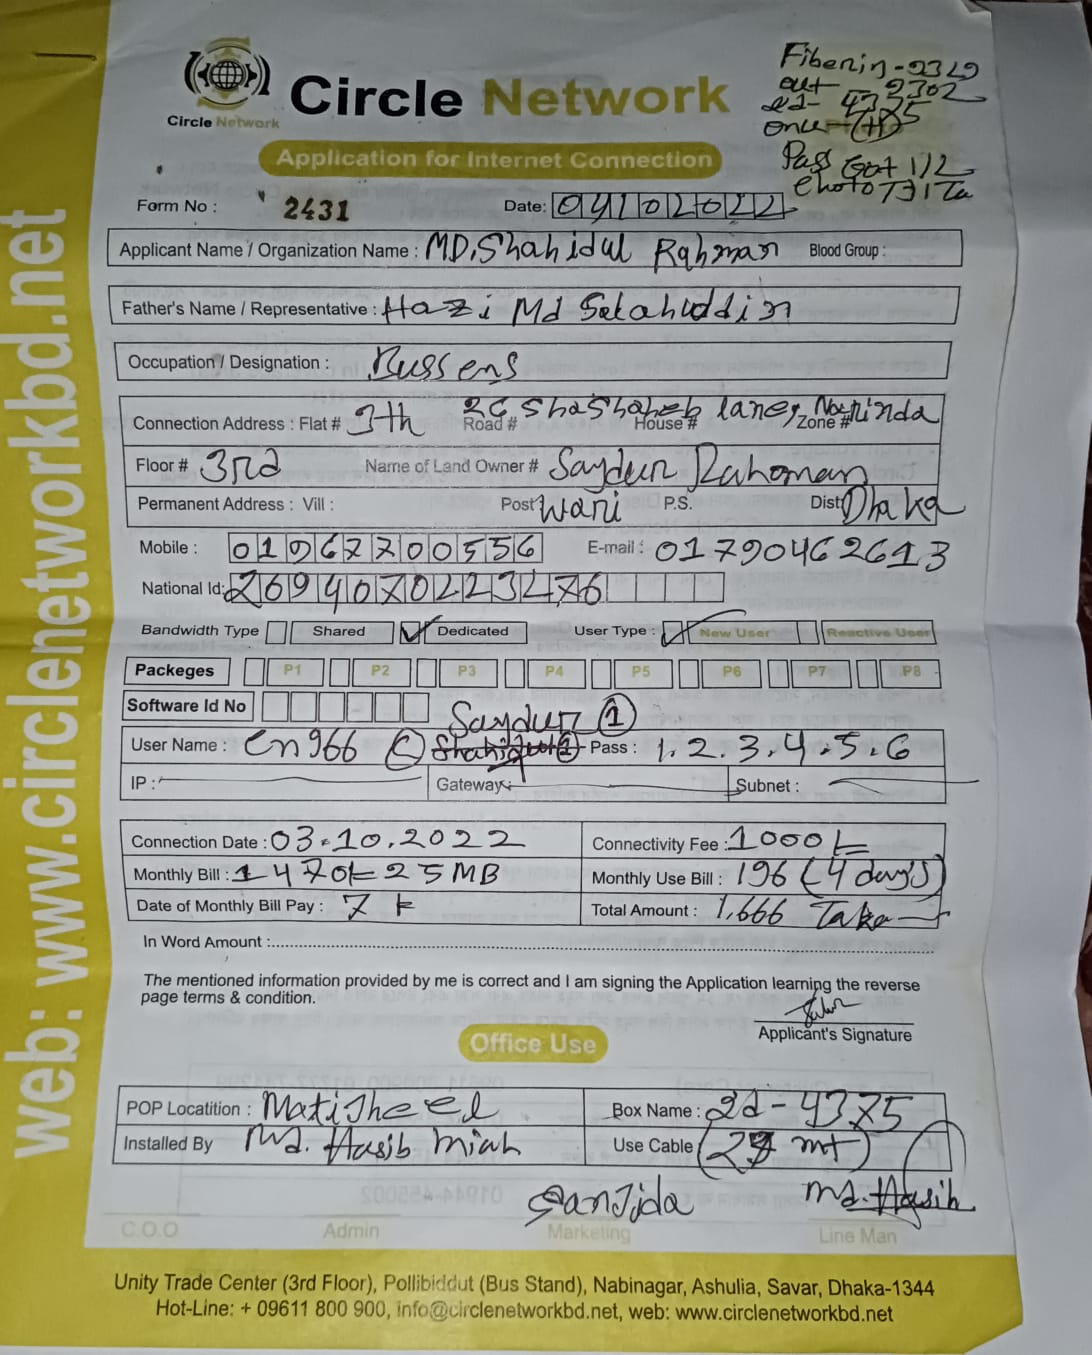 Circle Network
Circle Network
Fiberin-2329
out- 2302
2d- 4375
Application for Internet Connection
Form No : 2431
Date: 04102022
Applicant Name / Organization Name : MD. Shahidul Rahman Blood Group :
Father's Name / Representative : Hazi Md Salahuddin
Occupation / Designation : Bussens
Connection Address : Flat # 3th Road # 26 ShaShaheb lane, House # Narinda Zone #
Floor # 3rd Name of Land Owner # Saydur Rahoman
Permanent Address : Vill : Post Wari P.S. Dist Dhaka
Mobile : 01967700556 E-mail : 01790462613
National Id: 2694070223476
Bandwidth Type Shared Dedicated User Type : New User Reactive User
Packeges P1 P2 P3 P4 P5 P6 P7 P8
Software Id No
Saydur 1
User Name : Cn966 C Pass : 1.2.3.4.5.6
IP : Gateway: Subnet :
Connection Date : 03.10.2022 Connectivity Fee : 1000
Monthly Bill : 1470 25 MB Monthly Use Bill : 196 (4 day's)
Date of Monthly Bill Pay : 7 Total Amount : 1,666 Taka
In Word Amount :
The mentioned information provided by me is correct and I am signing the Application learning the reverse
page terms & condition.
Applicant's Signature
Office Use
POP Locatition : Matijheel Box Name : 2d-4375
Installed By Md. Hasib Miah Use Cable mt)
Sanjida Md. Hasib
C.O.O Admin Marketing Line Man
Unity Trade Center (3rd Floor), Pollibiddut (Bus Stand), Nabinagar, Ashulia, Savar, Dhaka-1344
Hot-Line: + 09611 800 900, info@circlenetworkbd.net, web: www.circlenetworkbd.net
web: www.circlenetworkbd.net